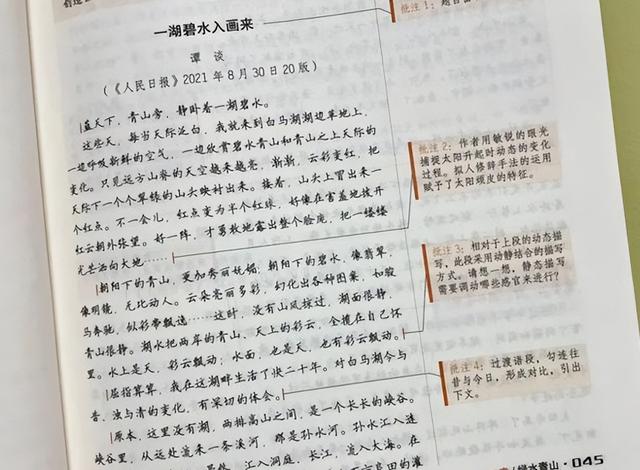 批注1：
一湖碧水入画来
谭 谈
（《人民日报》2021年8月30日20版）
蓝天下，青山旁，静卧着一湖碧水。
这些天，每当天际泛白，我就来到白马湖湖边草地上，
一边呼吸新鲜的空气，一边欣赏碧水青山和青山之上天际的
变化。只见远方山脊的天空越来越亮，渐渐，云彩变红，把
天际下一个个翠绿的山头映衬出来。接着，山头上冒出来一
个红点。不一会儿，红点变为半个红球，好像在害羞地拨开
红云朝外张望。好一阵，才勇敢地露出整个脸庞，把一缕缕
光芒洒向大地……
朝阳下的青山，更加秀丽妩媚；朝阳下的碧水，像翡翠，
像明镜，无比动人。云朵亮丽多彩，幻化出各种图案，如骏
马奔驰，似彩带飘逸……这时，没有山风掠过，湖面很静，
青山很静。湖水把两岸的青山、天上的彩云，全揽在自己怀
里。水上是天，彩云飘动；水面，也是天，也有彩云飘动。
屈指算算，我在这湖畔生活了快二十年。对白马湖今与
昔、浊与清的变化，有深切的体会。
原本，这里没有湖，两排高山之间，是一个长长的峡谷。
峡谷里，从远处流来一条溪河，那是孙水河。孙水汇入涟
汇入洞庭、长江，流入大海。在
批注2：作者用敏锐的眼光
捕捉太阳升起时动态的变化
过程。拟人修辞手法的运用
赋予了太阳顽皮的特征。
批注3：相对于上段的动态描
写，此段采用动静结合的描写
方式。请想一想，静态描写
需要调动哪些感官来进行？
批注4：过渡语段，勾连往
昔与今日，形成对比，引出
下文。
045